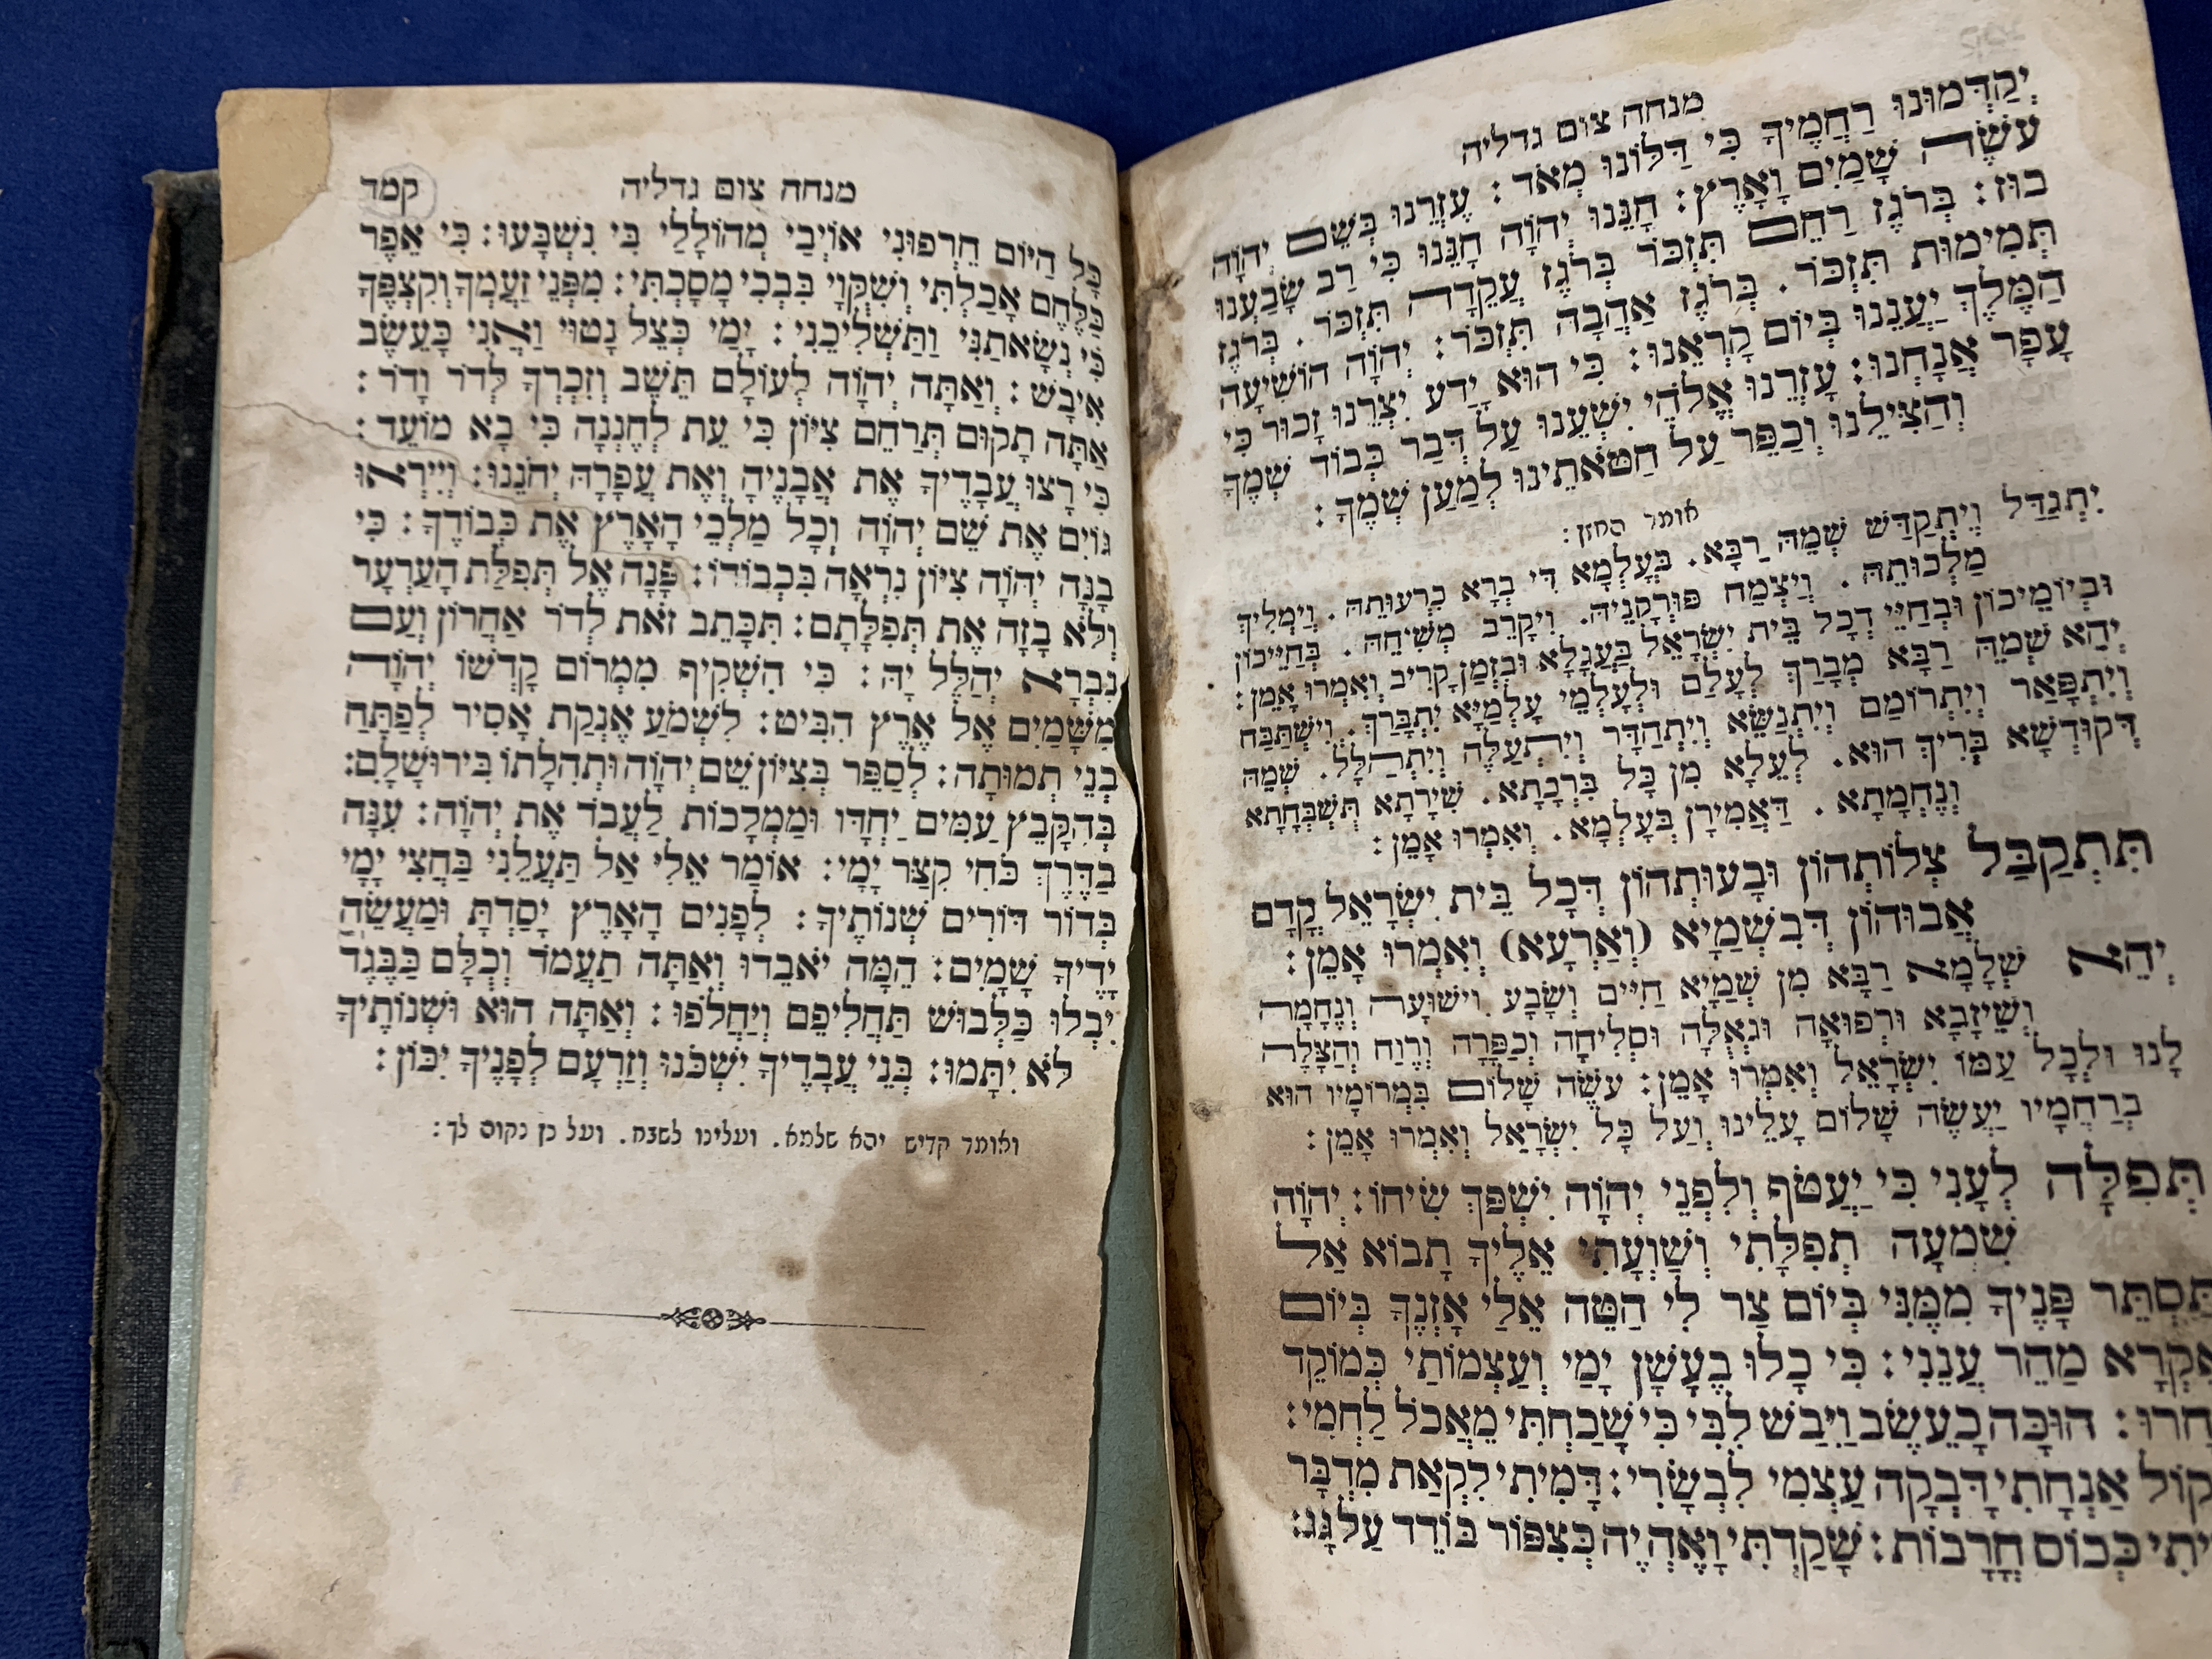 מנחה צום גדליה
יְקַדְּמוּנוּ רַחֲמֶיךָ כִּי דַלּוֹנוּ מְאֹד : עֶזְרֵנוּ בְּשֵׁם יְהֹוָה
עֹשֶׂה שָׁמַיִם וָאָרֶץ : חָנֵּנוּ יְהֹוָה חָנֵּנוּ כִּי רַב שָׂבַעְנוּ
בוּז : בְּרֹגֶז רַחֵם תִּזְכֹּר בְּרֹגֶז עֲקֵדָה תִּזְכֹּר . בְּרֹגֶז
תְּמִימוּת תִּזְכֹּר . בְּרֹגֶז אַהֲבָה תִּזְכֹּר : יְהֹוָה הוֹשִׁיעָה
הַמֶּלֶךְ יַעֲנֵנוּ בְיוֹם קָרְאֵנוּ : כִּי הוּא יָדַע יִצְרֵנוּ זָכוּר כִּי
עָפָר אֲנָחְנוּ : עָזְרֵנוּ אֱלֹהֵי יִשְׁעֵנוּ עַל דְּבַר כְּבוֹד שְׁמֶךָ
וְהַצִּילֵנוּ וְכַפֵּר עַל חַטֹּאתֵינוּ לְמַעַן שְׁמֶךָ :
אומר החזן :
יִתְגַּדַּל וְיִתְקַדַּשׁ שְׁמֵהּ רַבָּא . בְּעָלְמָא דִּי בְרָא כִרְעוּתֵהּ . וְיַמְלִיךְ
מַלְכוּתֵהּ . וְיַצְמַח פּוּרְקָנֵיהּ . וִיקָרֵב מְשִׁיחֵהּ . בְּחַיֵּיכוֹן
וּבְיוֹמֵיכוֹן וּבְחַיֵּי דְכָל בֵּית יִשְׂרָאֵל בַּעֲגָלָא וּבִזְמַן קָרִיב וְאִמְרוּ אָמֵן :
יְהֵא שְׁמֵהּ רַבָּא מְבָרַךְ לְעָלַם וּלְעָלְמֵי עָלְמַיָּא יִתְבָּרַךְ . וְיִשְׁתַּבַּח
וְיִתְפָּאַר וְיִתְרוֹמַם וְיִתְנַשֵּׂא וְיִתְהַדָּר וְיִתְעַלֶּה וְיִתְהַלָּל . שְׁמֵהּ
דְּקוּדְשָׁא בְּרִיךְ הוּא . לְעֵלָּא מִן כָּל בִּרְכָתָא . שִׁירָתָא תֻּשְׁבְּחָתָא
וְנֶחֱמָתָא . דַּאֲמִירָן בְּעָלְמָא . וְאִמְרוּ אָמֵן :
תִּתְקַבַּל צְלוֹתְהוֹן וּבָעוּתְהוֹן דְּכָל בֵּית יִשְׂרָאֵל קֳדָם
אֲבוּהוֹן דְּבִשְׁמַיָּא (וְאַרְעָא) וְאִמְרוּ אָמֵן :
יְהֵא שְׁלָמָא רַבָּא מִן שְׁמַיָּא חַיִּים וְשָׂבָע וִישׁוּעָה וְנֶחָמָה
וְשֵׁיזָבָא וּרְפוּאָה וּגְאֻלָּה וּסְלִיחָה וְכַפָּרָה וְרֶוַח וְהַצָּלָה
לָנוּ וּלְכָל עַמּוֹ יִשְׂרָאֵל וְאִמְרוּ אָמֵן : עֹשֶׂה שָׁלוֹם בִּמְרוֹמָיו הוּא
בְּרַחֲמָיו יַעֲשֶׂה שָׁלוֹם עָלֵינוּ וְעַל כָּל יִשְׂרָאֵל וְאִמְרוּ אָמֵן :
תְּפִלָּה לְעָנִי כִי יַעֲטֹף וְלִפְנֵי יְהֹוָה יִשְׁפֹּךְ שִׂיחוֹ : יְהֹוָה
שִׁמְעָה תְפִלָּתִי וְשַׁוְעָתִי אֵלֶיךָ תָבוֹא אַל
תַּסְתֵּר פָּנֶיךָ מִמֶּנִּי בְּיוֹם צַר לִי הַטֵּה אֵלַי אָזְנֶךָ בְּיוֹם
אֶקְרָא מַהֵר עֲנֵנִי : כִּי כָלוּ בְעָשָׁן יָמַי וְעַצְמוֹתַי כְּמוֹקֵד
חרוּ : הוּכָּה כָעֵשֶׂב וַיִּבַשׁ לִבִּי כִּי שָׁכַחְתִּי מֵאֲכֹל לַחְמִי :
קוֹל אַנְחָתִי דָּבְקָה עַצְמִי לִבְשָׂרִי : דָּמִיתִי לִקְאַת מִדְבָּר
יִתִי כְּכוֹס חֳרָבוֹת : שָׁקַדְתִּי וָאֶהְיֶה כְּצִפּוֹר בּוֹדֵד עַל גָּג :
מנחה צום גדליה קמד
כָּל הַיּוֹם חֵרְפוּנִי אוֹיְבָי מְהוֹלָלַי בִּי נִשְׁבָּעוּ : כִּי אֵפֶר
כַּלֶּחֶם אָכָלְתִּי וְשִׁקֻּוַי בִּבְכִי מָסָכְתִּי : מִפְּנֵי זַעַמְךָ וְקִצְפֶּךָ
כִּי נְשָׂאתַנִי וַתַּשְׁלִיכֵנִי : יָמַי כְּצֵל נָטוּי וַאֲנִי כָּעֵשֶׂב
אִיבָשׁ : וְאַתָּה יְהֹוָה לְעוֹלָם תֵּשֵׁב וְזִכְרְךָ לְדֹר וָדֹר :
אַתָּה תָקוּם תְּרַחֵם צִיּוֹן כִּי עֵת לְחֶנְנָהּ כִּי בָא מוֹעֵד :
כִּי רָצוּ עֲבָדֶיךָ אֶת אֲבָנֶיהָ וְאֶת עֲפָרָהּ יְחֹנֵנוּ : וְיִירְאוּ
גוֹיִם אֶת שֵׁם יְהֹוָה וְכָל מַלְכֵי הָאָרֶץ אֶת כְּבוֹדֶךָ : כִּי
בָנָה יְהֹוָה צִיּוֹן נִרְאָה בִּכְבוֹדוֹ : פָּנָה אֶל תְּפִלַּת הָעַרְעָר
וְלֹא בָזָה אֶת תְּפִלָּתָם : תִּכָּתֶב זֹאת לְדֹר אַחֲרוֹן וְעַם
נִבְרָא יְהַלֶּל יָהּ : כִּי הִשְׁקִיף מִמְּרוֹם קָדְשׁוֹ יְהֹוָה
מִשָּׁמַיִם אֶל אֶרֶץ הִבִּיט : לִשְׁמֹעַ אֶנְקַת אָסִיר לְפַתֵּחַ
בְּנֵי תְמוּתָה : לְסַפֵּר בְּצִיּוֹן שֵׁם יְהֹוָה וּתְהִלָּתוֹ בִּירוּשָׁלִָם :
בְּהִקָּבֵץ עַמִּים יַחְדָּו וּמַמְלָכוֹת לַעֲבֹד אֶת יְהֹוָה : עִנָּה
בַדֶּרֶךְ כֹּחִי קִצַּר יָמָי : אוֹמַר אֵלִי אַל תַּעֲלֵנִי בַּחֲצִי יָמָי
בְּדוֹר דּוֹרִים שְׁנוֹתֶיךָ : לְפָנִים הָאָרֶץ יָסַדְתָּ וּמַעֲשֵׂה
יָדֶיךָ שָׁמָיִם : הֵמָּה יֹאבֵדוּ וְאַתָּה תַעֲמֹד וְכֻלָּם כַּבֶּגֶד
יִבְלוּ כַּלְּבוּשׁ תַּחֲלִיפֵם וְיַחֲלֹפוּ : וְאַתָּה הוּא וּשְׁנוֹתֶיךָ
לֹא יִתָּמּוּ : בְּנֵי עֲבָדֶיךָ יִשְׁכֹּנוּ וְזַרְעָם לְפָנֶיךָ יִכּוֹן :
ואומר קדיש יהא שלמא . ועלינו לשבח . ועל כן נקוה לך :